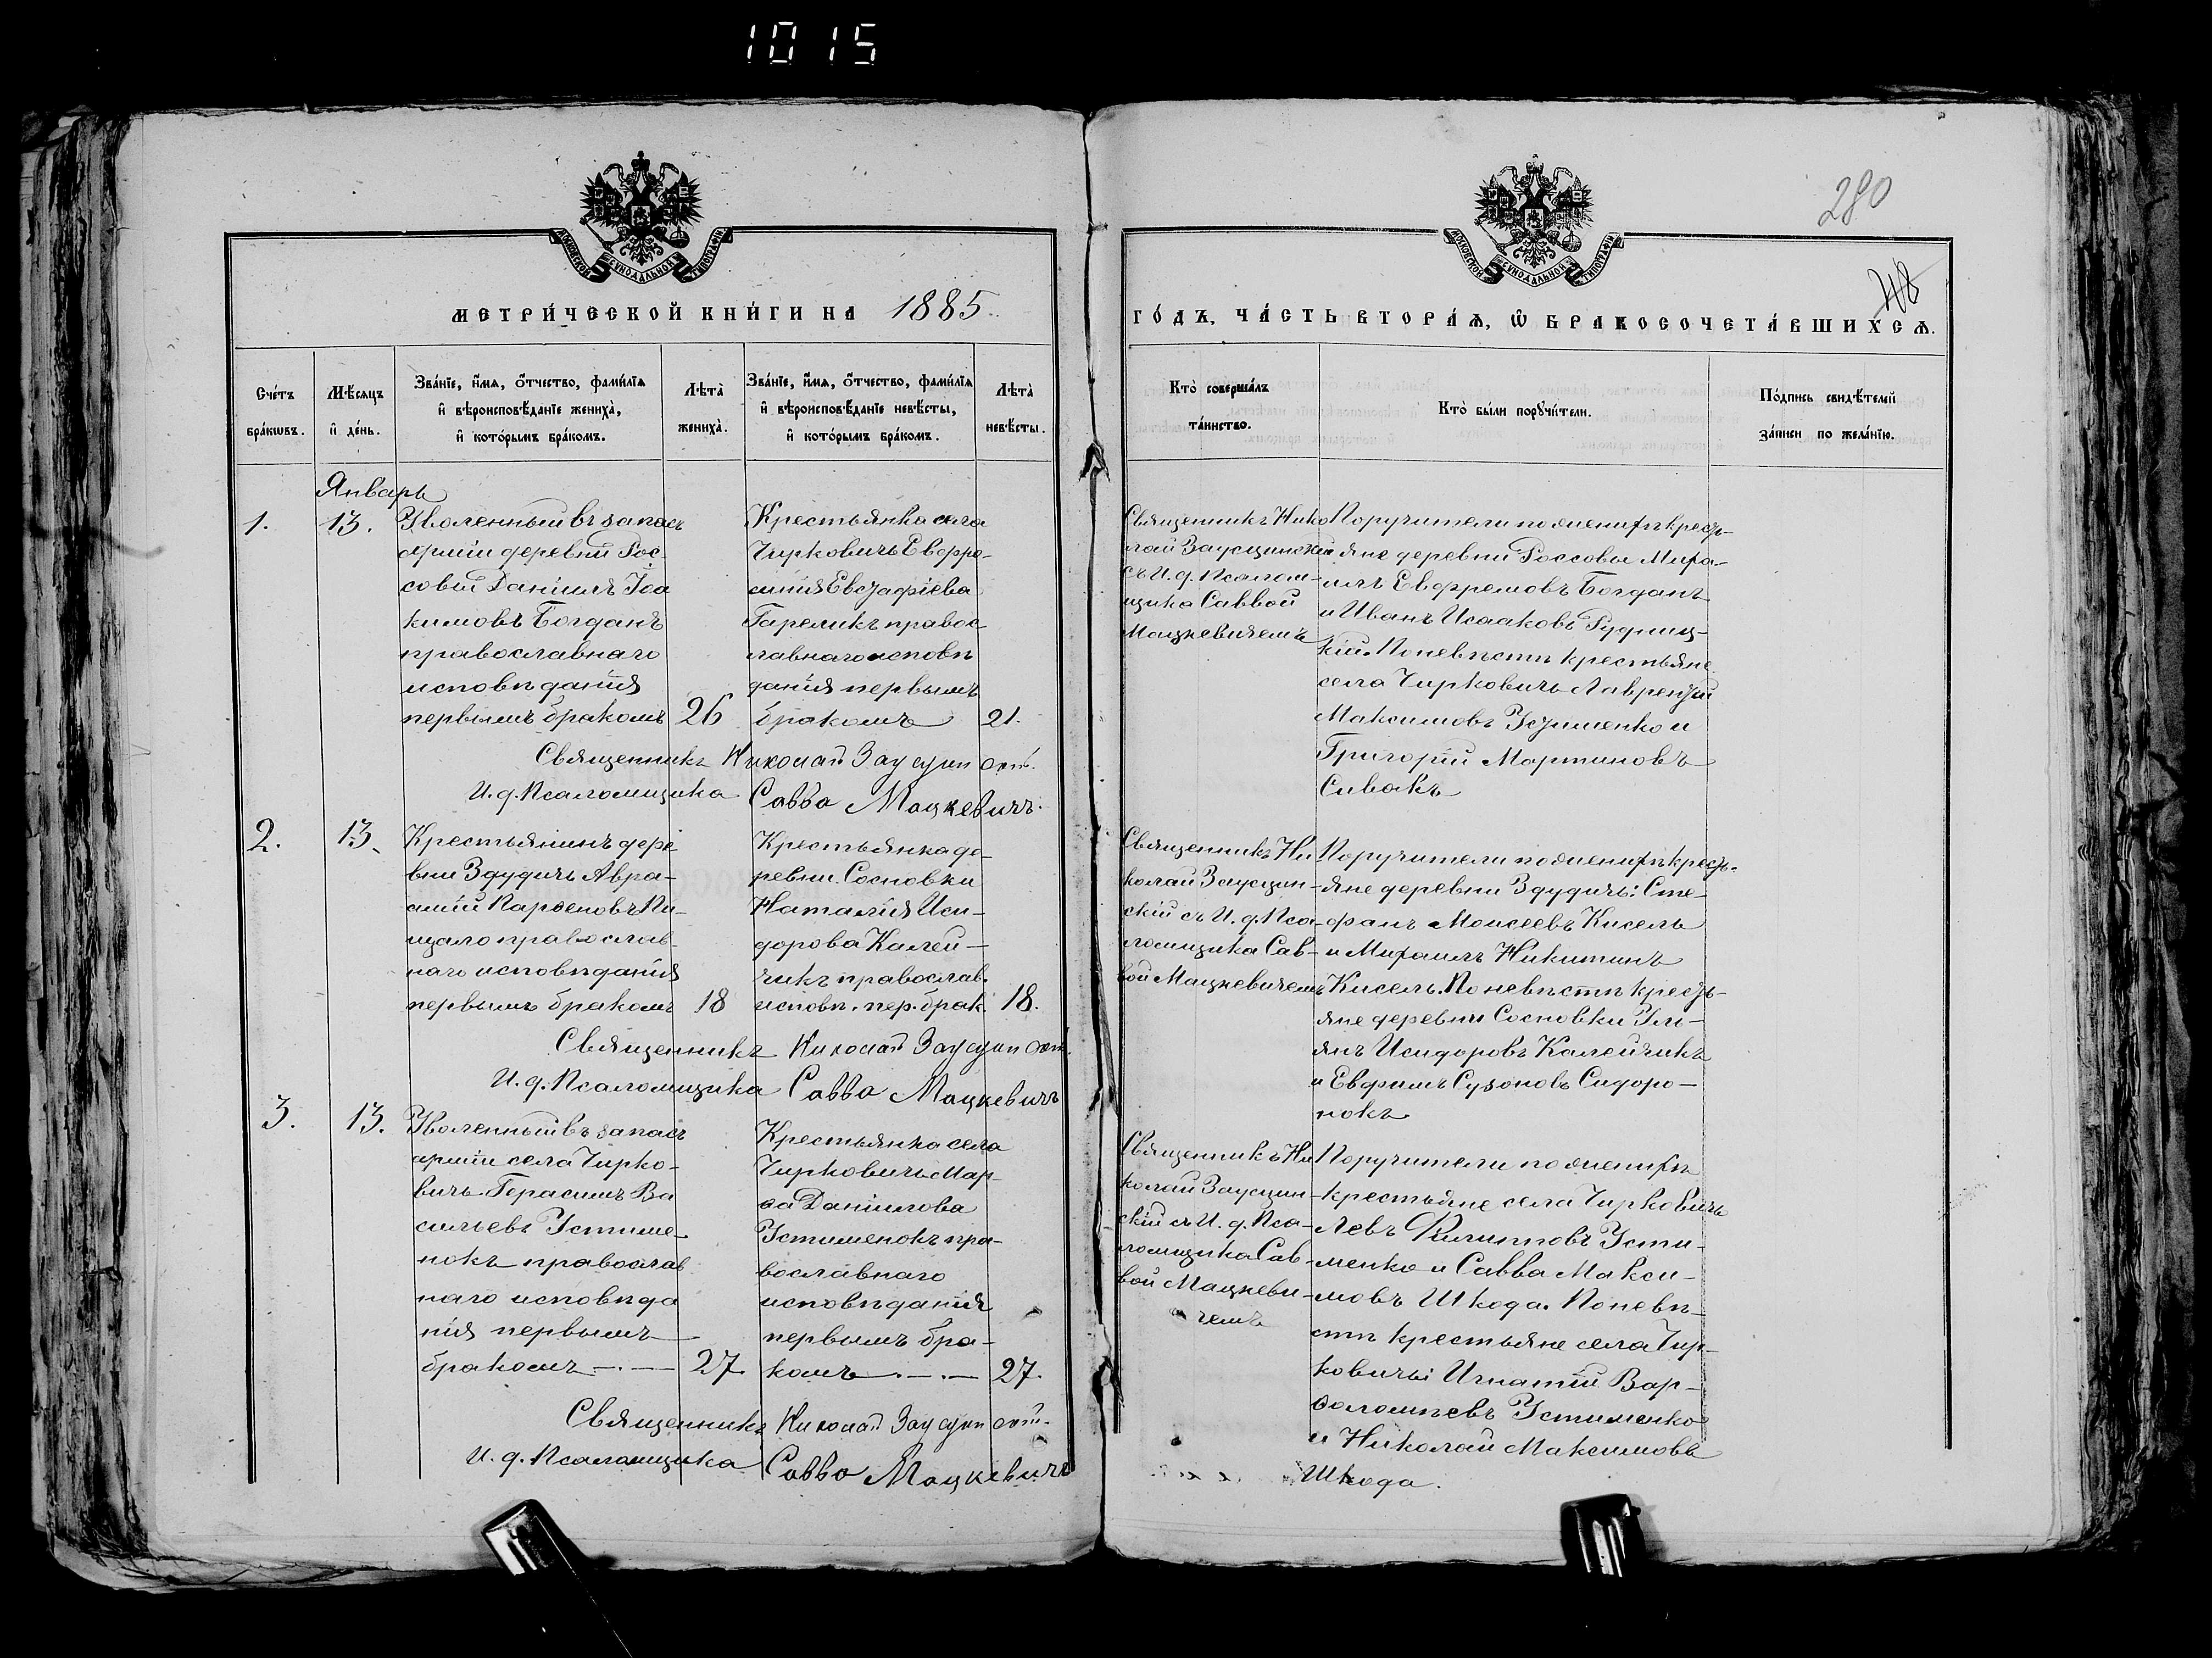 1015
280
МОСКОВСКОЙ СѴНОДАЛЬНОЙ ТИПОГРАФІИ
МОСКОВСКОЙ СѴНОДАЛЬНОЙ ТИПОГРАФІИ
МЕТРИ́ЧЕСКОЙ КНИ́ГИ НА 1885
ГО́ДЪ, ЧА́СТЬ ВТОРА́Ѧ, Ѽ БРАКОСОЧЕТА́ВШИХСѦ.
Сче́тъ
бра́кѡвъ.
Мѣ́сяцъ
и҆ де́нь.
Зва́нїе, и҆́мя, ѻ҆́тчество, фами́лїя
и҆ вѣроисповѣ́данїе жениха̀,
и҆ кото́рымъ бра́комъ.
Лѣта̀
жениха̀.
Зва́нїе, и҆́мя, ѻ҆́тчество, фами́лїя
и҆ вѣроисповѣ́данїе невѣ́сты,
и҆ кото́рымъ бра́комъ.
Лѣта̀
невѣ́сты.
Кто̀ соверша́лъ
та́инство.
Кто̀ бы́ли порꙋчи́тели.
По́дпись свидѣ́телей
за́писи по жела́нїю.
Январь
1.
13.
Уволенный въ запасъ
арміи деревни Рос
совы Даніилъ Іоа
кимовъ Богданъ
православнаго
исповѣданія
первымъ бракомъ
26
Крестьянка села
Чирковичъ Евфро-
синія Евстафіева
Гареликъ правос-
лавнаго исповѣ
данія первымъ
бракомъ
21.
Священникъ Нико
лай Заусцинскій
съ И. д. Псалом-
щика Саввой
Мацкевичемъ
Поручители по женихѣ крест-
яне деревни Россовы Миха-
илъ Евфремовъ Богданъ
и Иванъ Исааковъ Рудниц-
кій. По невѣстѣ крестьяне
села Чирковичъ Лаврентій
Максимовъ Устименко и
Григорій Мартиновъ
Сивакъ
Священникъ Николай Заусцинскій.
И. д. Псаломщика Савва Мацкевичъ.
2.
13.
Крестьянинъ дере
вни Здудичъ Авра-
амій Парѳеновъ Пи-
щало православ-
наго исповѣданія
первымъ бракомъ
18
Крестьянка де-
ревни Сосновки
Наталія Иси-
дорова Калей-
чикъ православ.
исповѣ. пер. брак.
18.
Священникъ Ни-
колай Заусцин-
скій съ И. д. Пса-
ломщика Сав-
вой Мацкевичемъ
Поручители по женихѣ крест-
яне деревни Здудичъ: Сте-
фанъ Моисеевъ Кисель
и Михаилъ Никитинъ
Кисель. По невѣстѣ крест-
яне деревни Сосновки Уль-
янъ Исидоровъ Калейчикъ
и Евфимъ Сидоро-
нокъ
Священникъ Николай Заусцинскій.
И. д. Псаломщика Савва Мацкевичъ
3.
13.
Уволенный въ запасъ
арміи села Чирко-
вичъ Герасимъ Ва
сильевъ Устиме-
нокъ православ
наго исповѣда
нія первымъ
бракомъ
27
Крестьянка села
Чирковичъ Мар-
ѳа Даніилова
Устименокъ пра-
вославнаго
исповѣданія
первымъ бра-
комъ
27.
Священникъ Ни
колай Заусцин-
скій съ И. д. Пса-
ломщика Сав-
вой Мацкеви-
чемъ
Поручители по женихѣ
крестьяне села Чирковичъ
Левъ Филипповъ Усти-
менко и Савва Макси-
мовъ Шкода. По невѣ-
стѣ крестьяне села Чир-
ковичъ: Игнатій Вар-
ѳоломѣевъ Устименко
и Николай Максимовъ
Шкода.
Священникъ Николай Заусцинскій.
И. д. Псаломщика Савва Мацкевичъ